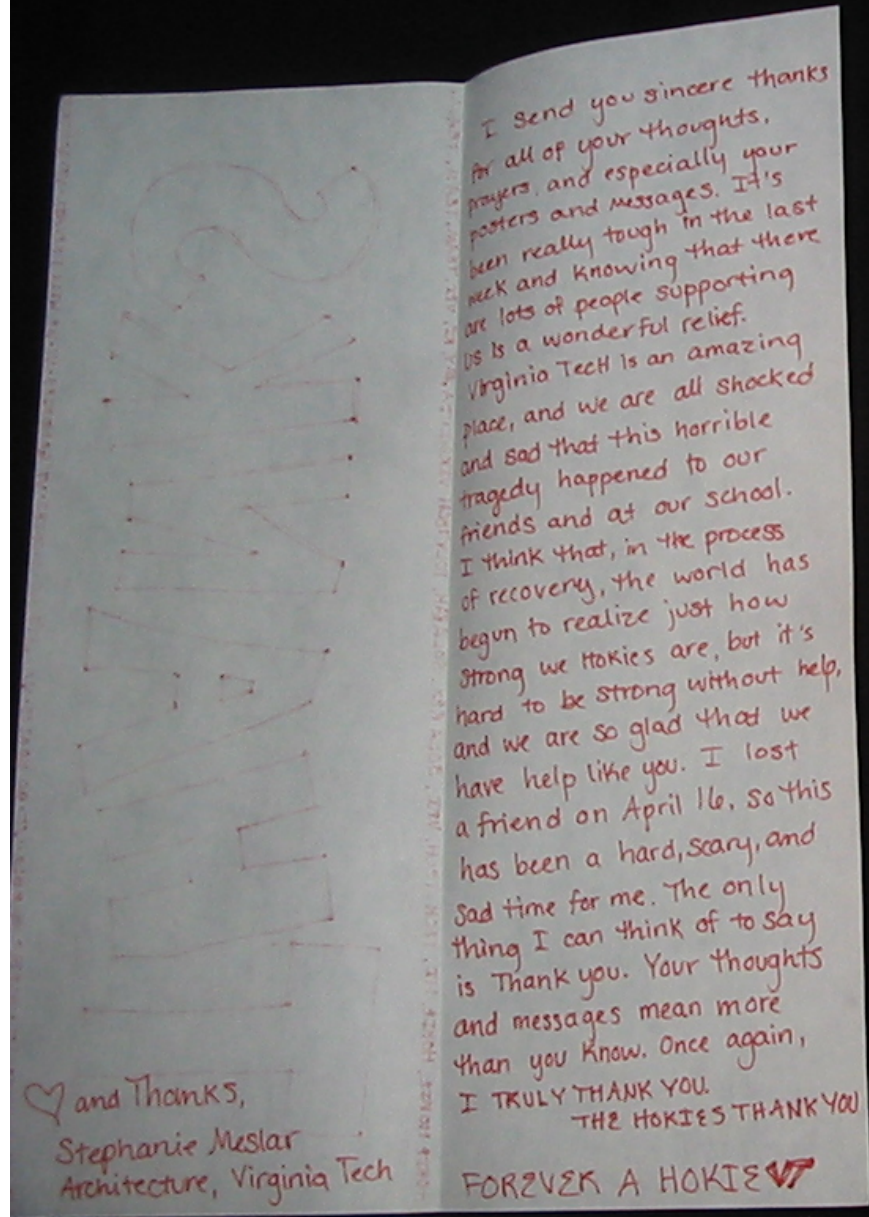 I send you sincere thanks
for all of your thoughts,
prayers, and especially your
posters and messages. It's
been really tough in the last
week and knowing that there
are lots of people supporting
us is a wonderful relief.
Virginia TecH is an amazing
place, and we are all shocked
and sad that this horrible
tragedy happened to our
friends and at our school.
I think that, in the process
of recovery, the world has
begun to realize just how
strong we Hokies are, but it's
hard to be strong without help,
and we are so glad that we
have help like you. I lost
a friend on April 16, so this
has been a hard, scary, and
sad time for me. The only
thing I can think of to say
is Thank you. Your thoughts
and messages mean more
than you know. Once again,
I TRULY THANK YOU.
THE HOKIES THANK YOU
FOREVER A HOKIE VT
♡ and Thanks,
Stephanie Meslar
Architecture, Virginia Tech